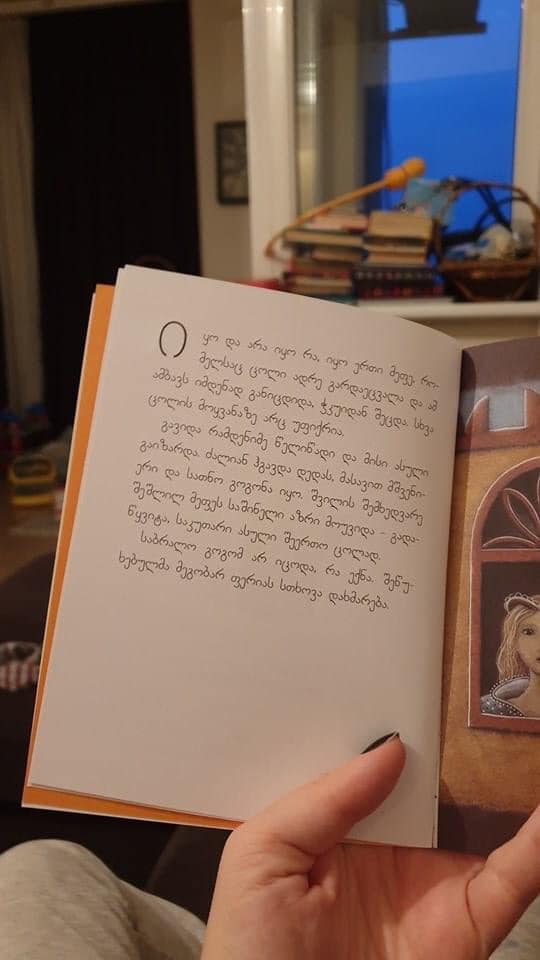 იყო და არა იყო რა, იყო ერთი მეფე, რო-
მელსაც ცოლი ადრე გარდაეცვალა და ამ
ამბავს იმდენად განიცდიდა, ჭკუიდან შეცდა. სხვა
ცოლის მოყვანაზე არც უფიქრია.
გავიდა რამდენიმე წელიწადი და მისი ასული
გაიზარდა. ძალიან ჰგავდა დედას, მასავით მშვენი-
ერი და სათნო გოგონა იყო. შვილის შემხედვარე
შეშლილ მეფეს საშინელი აზრი მოუვიდა – გადა-
წყვიტა, საკუთარი ასული შეერთო ცოლად.
საბრალო გოგომ არ იცოდა, რა ექნა. შეწუ-
ხებულმა მეგობარ ფერიას სთხოვა დახმარება.